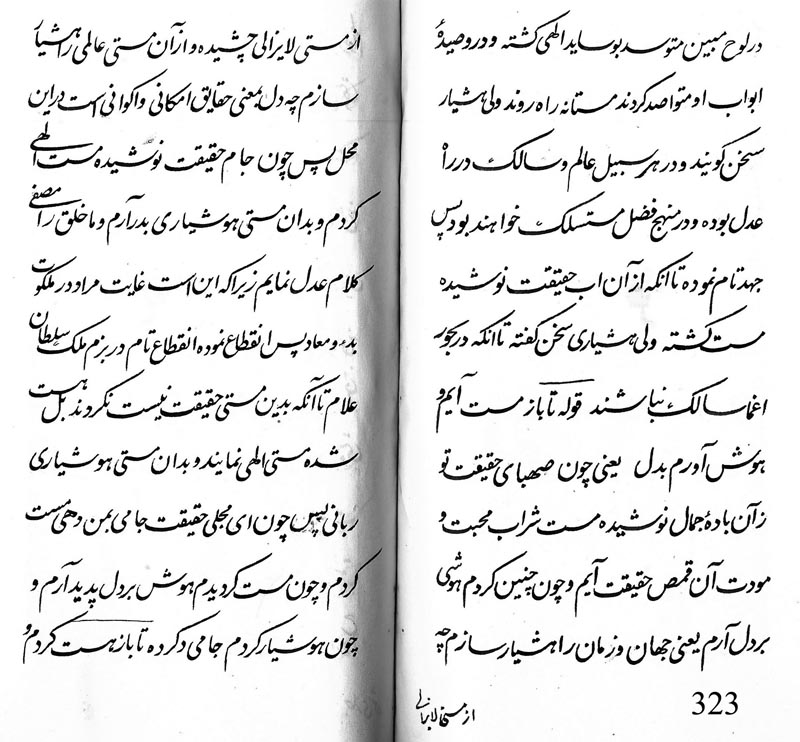 در لوح مبین متوسد بوساید الهی کشته و در وصیدهٔ
ابواب او متواصد کردند مستانه راه روند ولی هشیار
سخن کویند و در هر سبیل عالم و سالک در راه
عدل بوده و در منهج فضل مستسلک خواهند بود پس
جهد تام نموده تا انکه از آن اب حقیقت نوشیده
مست کشته ولی هشیاری سخن کفته تا انکه در بحور
اغما سالک نباشند قوله تا باز مست آیم و
هوش آورم بدل یعنی چون صهبای حقیقت تو
زآن بادهٔ جمال نوشیده مست شراب محبت و
مودت آن قمص حقیقت آیم و چون چنین کردم هوشی
بر دل آرم یعنی جهان و زمان را هشیار سازم چه
از مستی لایزالی
323
از مستی لایزالی چشیده و از آن مستی عالمی را هشیار
سازم چه دل بمعنی حقایق امکانی و اکوانی است در این
محل پس چون جام حقیقت نوشیده مست الهی
کردم و بدان مستی هوشیاری بدر آرم و ما خلق را مصفی
کلام عدل نمایم زیرا که این است غایت مراد در ملکوت
بدء و معاد پس انقطاع نموده انقطاع تام در بزم ملک سلطان
علام تا آنکه بدین مستی حقیقت نیست نکردند بل هست
شده مستی الهی نمایند و بدان مستی هوشیاری
ربانی پس چون ای مجلی حقیقت جامی بمن دهی مست
کردم و چون مست کردیدم هوش بر دل پدید آرم و
چون هوشیار کردم جامی دکر ده تا باز هست کردم و